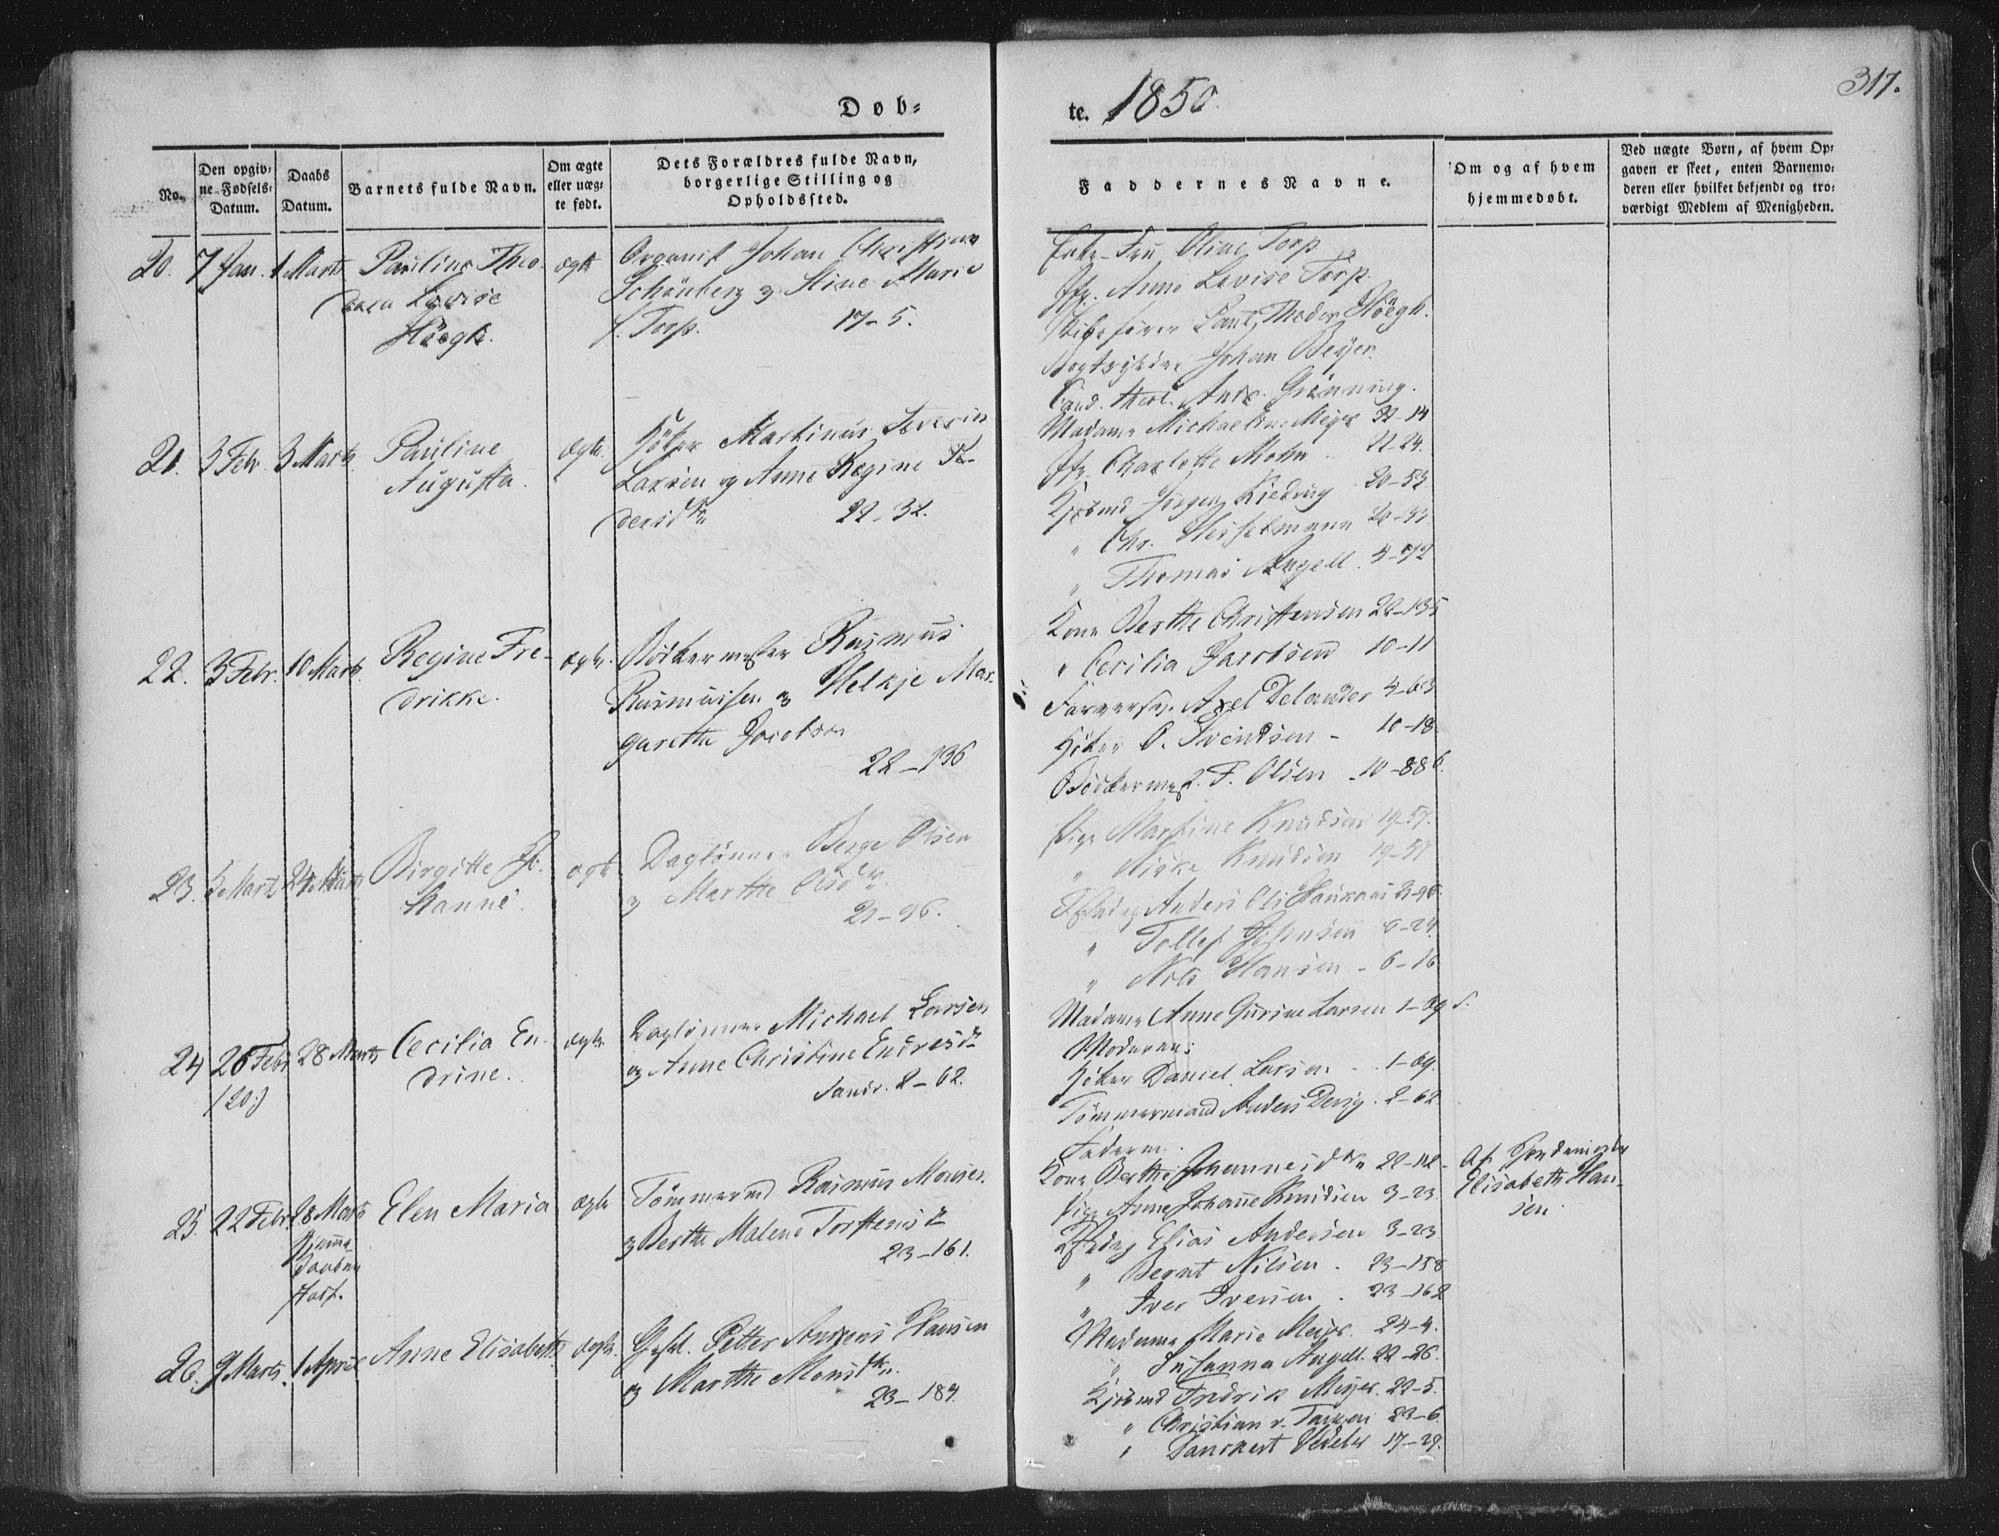 Døb-
te. 1850.
317.
No.
Den opgiv-
ne Fødsels-
Datum.
Daabs
Datum.
Barnets fulde Navn.
Om ægte
eller uæg-
te født.
Dets Forældres fulde Navn,
borgerlige Stilling og
Opholdssted.
Faddernes Navne.
Om og af hvem
hjemmedøbt.
Ved uægte Børn, af hvem Op-
gaven er skeet, enten Barnemo-
deren eller hvilket bekjendt og tro-
værdigt Medlem af Menigheden.
20. 7 Jan. 1 Marts Pauline Theo-
dora Lovise
Høegh.
ægte
Organist Johan Christian
Schönberg og Stine Marie
f. Torp.
17-5.
Fru Oline Torp
Jfr. Anne Lovise Torp.
Paul Theder Høegh.
Johan Beyer.
Cand. theol. Andr. Grønning.
21. 3 Febr. 3 Marts Pauline
Augusta.
ægte.
Høker Martinus Severin
Larsen og Anne Regine Pe-
dersdtr.
22-32.
Madame Michaeline Meyer 22-14
Jfr. Charlotte Mohn 22-24.
Kjøbmd Jørgen Kieding 20-53
" Chr. Hesselmann 20-33
" Thomas Angell. 4-72
22. 3 Febr. 10 Marts. Regine Fre-
drikke.
ægte.
Bødkermester Rasmus
Rasmussen og Helkje Mar-
garethe Jacobsen
22-136
Kone Berthe Christensen 22-135
" Cecilia Jacobsen 10-11
Farversv. Axel Delander 4-63
Høker O. Svendsen - 10-18.
Bødkermest. F. Olsen - 10-88 b.
23. 5 Marts 24 Marts Birgitte Jo-
hanne.
ægte.
Dagløнner Berge Olsen
og Marthe Olsdtr.
21-96.
Pige Martine Knudsen 19-57.
" Knudsen 19-57
Anders Olsen Haukaas 21-96
" Tollef Johnsen 6-24.
" Nils Hansen - 6-16
24 26 Febr. 28 Marts Cecilia En-
drine.
ægte
Dagløнner Michael Larsen
og Anne Christine Endresdtr
Sandv. 2-62.
Madame Anne Gurine Larsen 1-69 f.
Moderen:
Høker Daniel Larsen - 1-69.
Tømmermand Anders Dering. 2-62
Faderen.
25. 22 Febr. 28 Marts Elen Maria
Hjemme-
daaben
stadf.
ægte
Tømmermd Rasmus Monsen
og Berthe Malene Torstensdtr
23-161.
Kone Berthe Johannesdtr 22-112-
Pige Anne Johanne Knudsen 3-23
Elias Andersen 3-23
" Bernt Nilsen. 23-158
" Iver Iversen. 23-162
Af Jordemoder
Elisabeth Han-
sen.
26. 9 Marts. 1 April Anne Elisabeth
ægte.
Petter Andreas Hansen
og Marthe Monsdtr.
23-189.
Madame Marie Meyer. 24-4.
" Susanna Angell. 22-26.
Kjøbmd Fredrik Meyer. 22-5.
" Christian v. Tangen 23-6
" Danckert Vedeler 17-29.